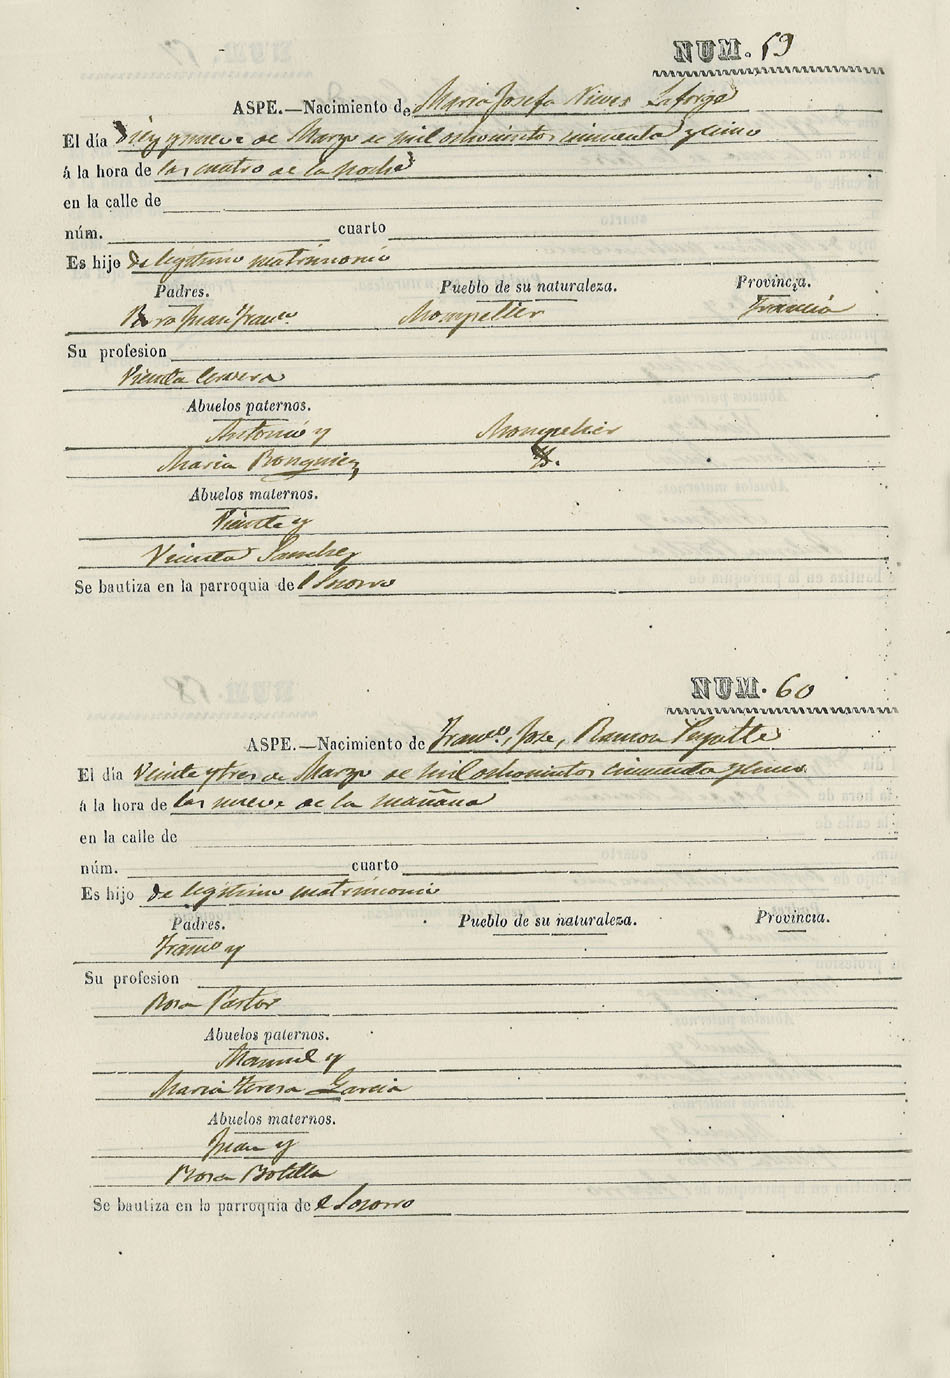 NUM. 59
ASPE.—Nacimiento de Maria Josefa Nieves Laforge
El día Diez y nueve de Marzo de mil ochocientos cincuenta y cinco
á la hora de las cuatro de la noche
en la calle de
núm. cuarto
Es hijo de legitimo matrimonio
Padres. Pueblo de su naturaleza. Provincia.
Juan Franco. Mompellier Francia
Su profesion
Vicenta Cervera
Abuelos paternos.
Antonio y Mompelier
Maria
Abuelos maternos.
Vicente y
Vicenta Sanchez
Se bautiza en la parroquia de l Socorro
NUM. 60
ASPE.—Nacimiento de Franco, Jose, Ramon
El día Veinte y tres de Marzo de mil ochocientos cincuenta y cinco
á la hora de las nueve de la mañana
en la calle de
núm. cuarto
Es hijo de legitimo matrimonio
Padres. Pueblo de su naturaleza. Provincia.
Franco y
Su profesion
Rosa Pastor
Abuelos paternos.
Manuel y
Maria Teresa Garcia
Abuelos maternos.
Juan y
Rosa Botella
Se bautiza en la parroquia de el Socorro